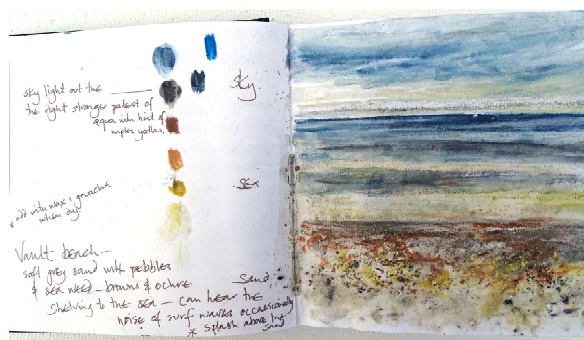 sky light out the
the right stronger palest of
aqua with hint of
naples yellow.
sky.
sea
add into wax & gouache
when dry
Vault beach —
soft grey sand with pebbles
& sea weed – browns & ochre
sand
Shelving to the sea – can hear the
noise of surf waves occassionally
* splash above line
sand